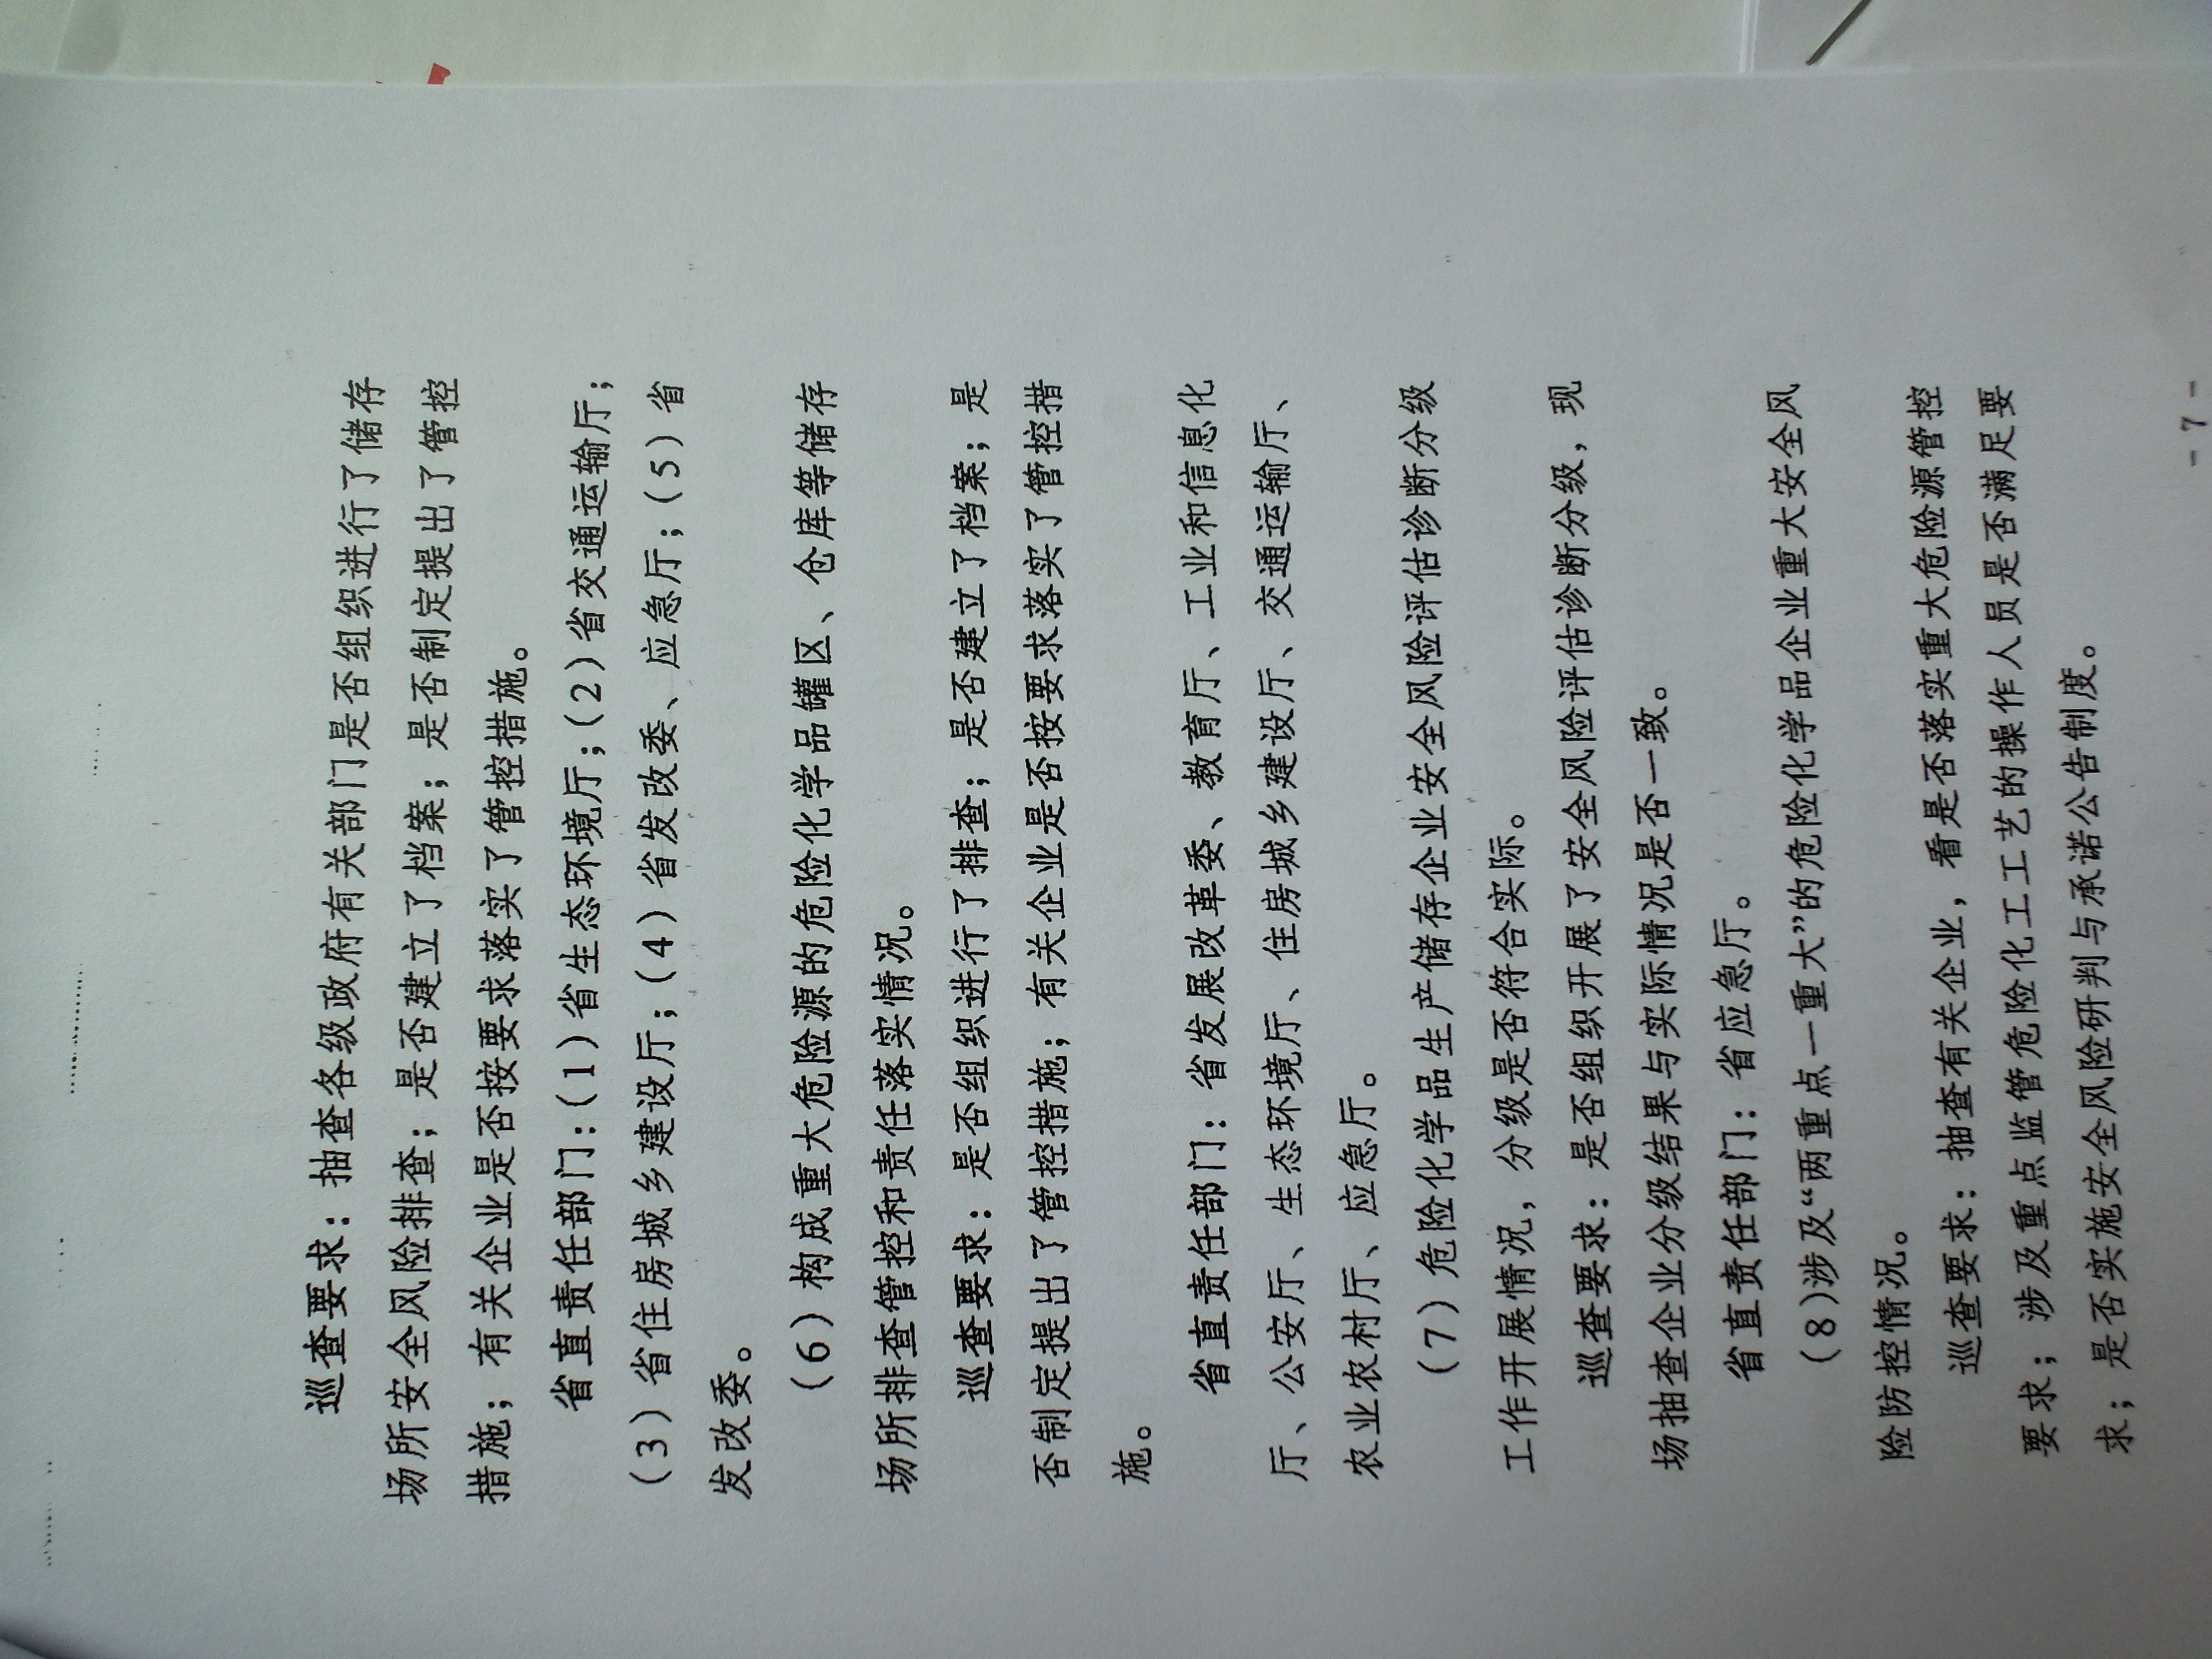 巡查要求：抽查各级政府有关部门是否组织进行了储存
场所安全风险排查；是否建立了档案；是否制定提出了管控
措施；有关企业是否按要求落实了管控措施。
省直责任部门：(1)省生态环境厅；(2)省交通运输厅；
(3)省住房城乡建设厅；(4)省发改委、应急厅；(5)省
发改委。
(6)构成重大危险源的危险化学品罐区、仓库等储存
场所排查管控和责任落实情况。
巡查要求：是否组织进行了排查；是否建立了档案；是
否制定提出了管控措施；有关企业是否按要求落实了管控措
施。
省直责任部门：省发展改革委、教育厅、工业和信息化
厅、公安厅、生态环境厅、住房城乡建设厅、交通运输厅、
农业农村厅、应急厅。
(7)危险化学品生产储存企业安全风险评估诊断分级
工作开展情况，分级是否符合实际。
巡查要求：是否组织开展了安全风险评估诊断分级，现
场抽查企业分级结果与实际情况是否一致。
省直责任部门：省应急厅。
(8)涉及“两重点一重大”的危险化学品企业重大安全风
险防控情况。
巡查要求：抽查有关企业，看是否落实重大危险源管控
要求；涉及重点监管危险化工工艺的操作人员是否满足要
求；是否实施安全风险研判与承诺公告制度。
- 7 -